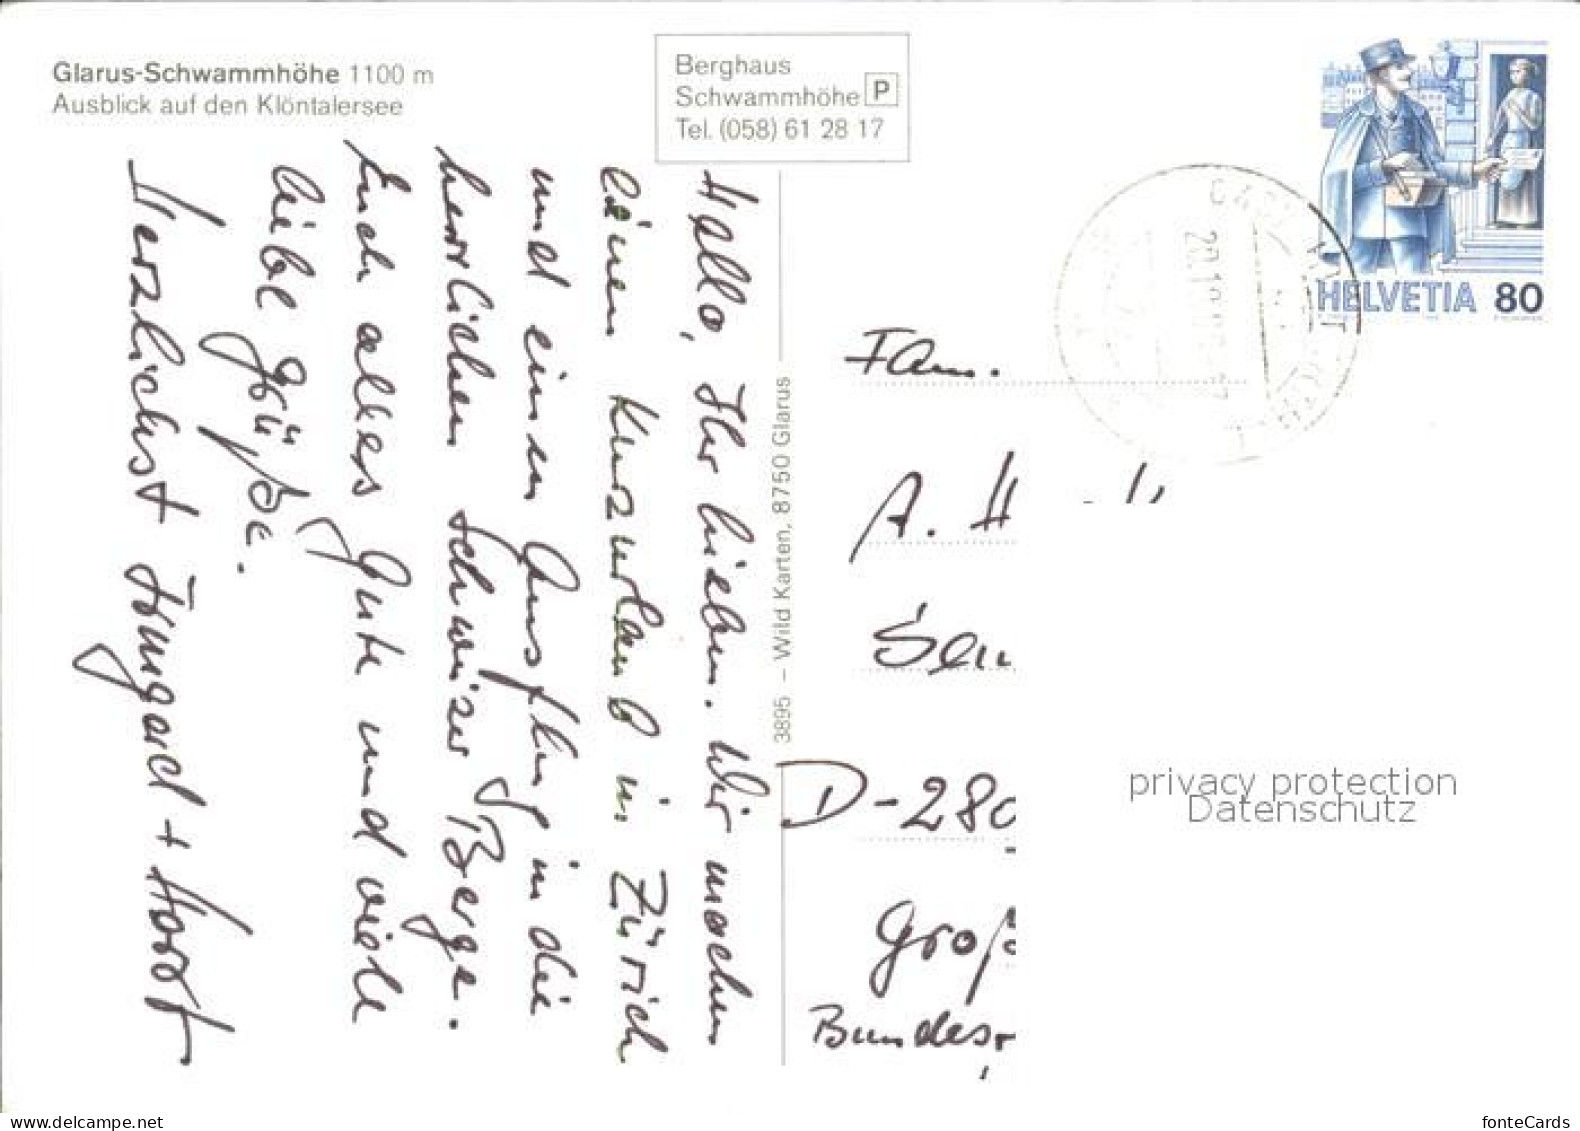 Glarus-Schwammhöhe 1100 m
Ausblick auf den Klöntalersee
Berghaus
Schwammhöhe P
Tel. (058) 61 28 17
HELVETIA 80
Hallo, Ihr lieben. Wir machen
einen Kurzurlaub in Zürich
und einen Ausflug in die
herrlichen Schweizer Berge.
Euch alles Gute und viele
liebe Grüße.
Herzlichst Irmgard + Horst
3895 – Wild Karten, 8750 Glarus
Fam.
A. H
D-280
Groß
Bundesr
privacy protection
Datenschutz
fonteCards